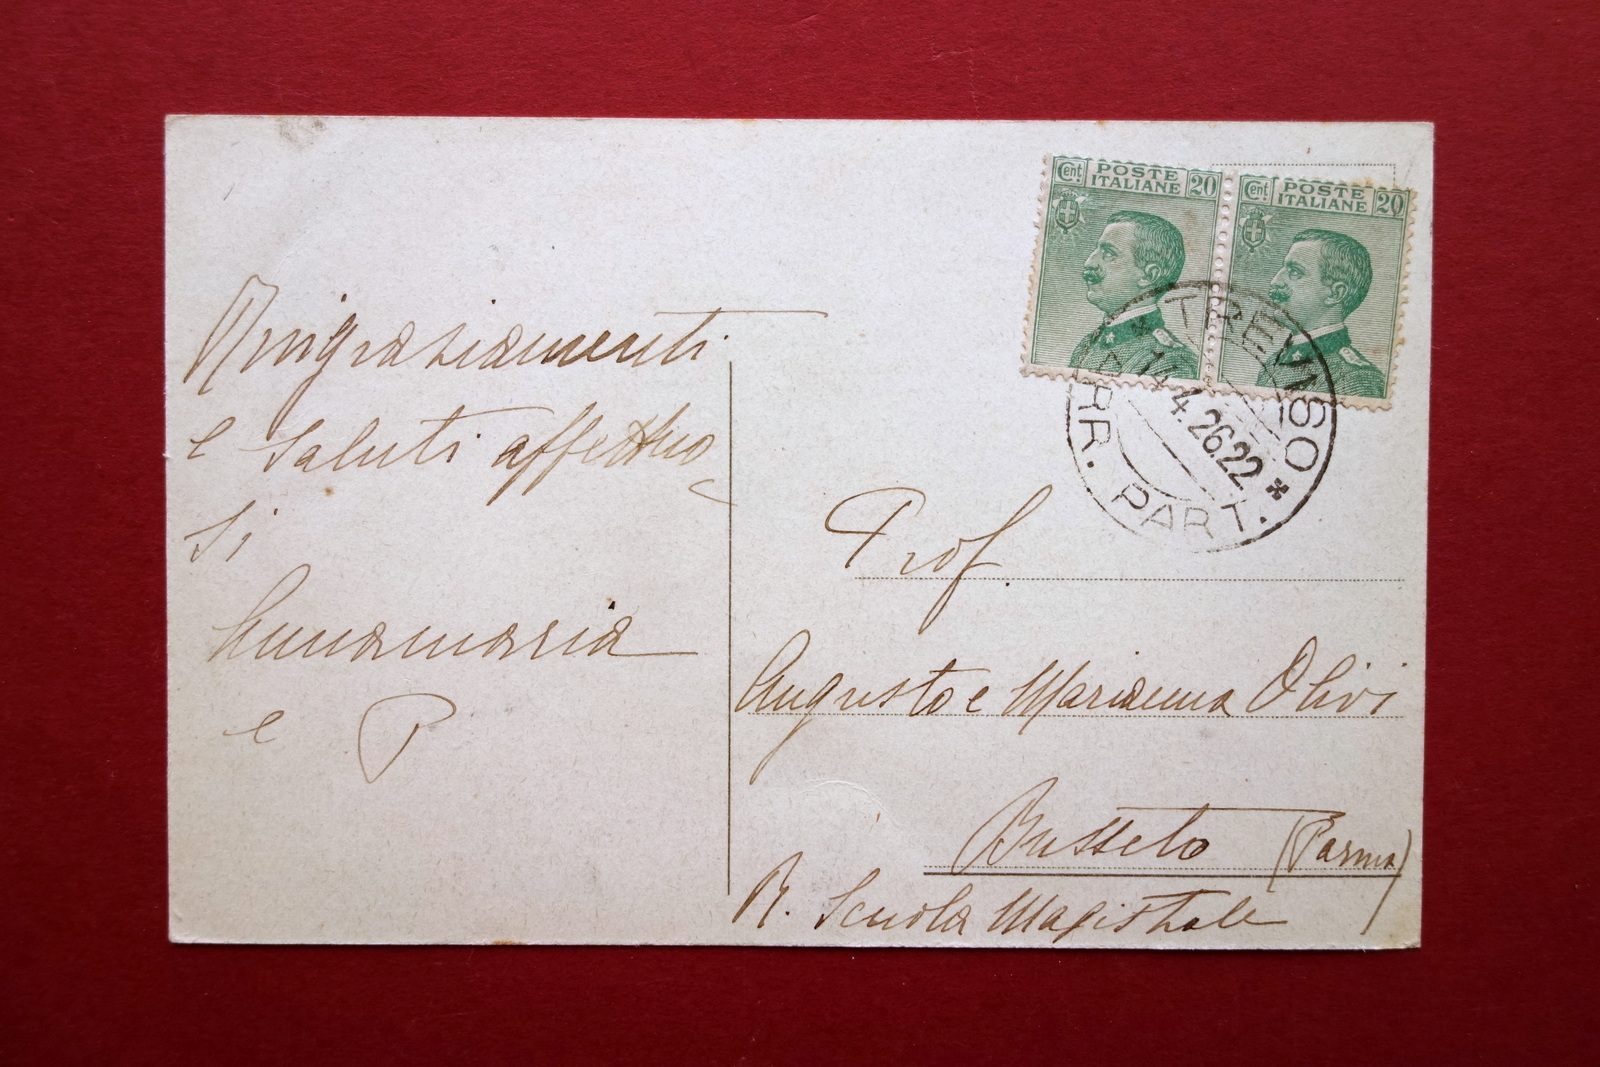 Ringraziamenti
e saluti affettuo-
si
Annamaria
e P
Cent. POSTE ITALIANE 20
Cent. POSTE ITALIANE 20
TREVISO
4.26.22
CORR. PART.
Prof.
Augusto e Marianna Olivi
Busseto (Parma)
R. Scuola Magistrale